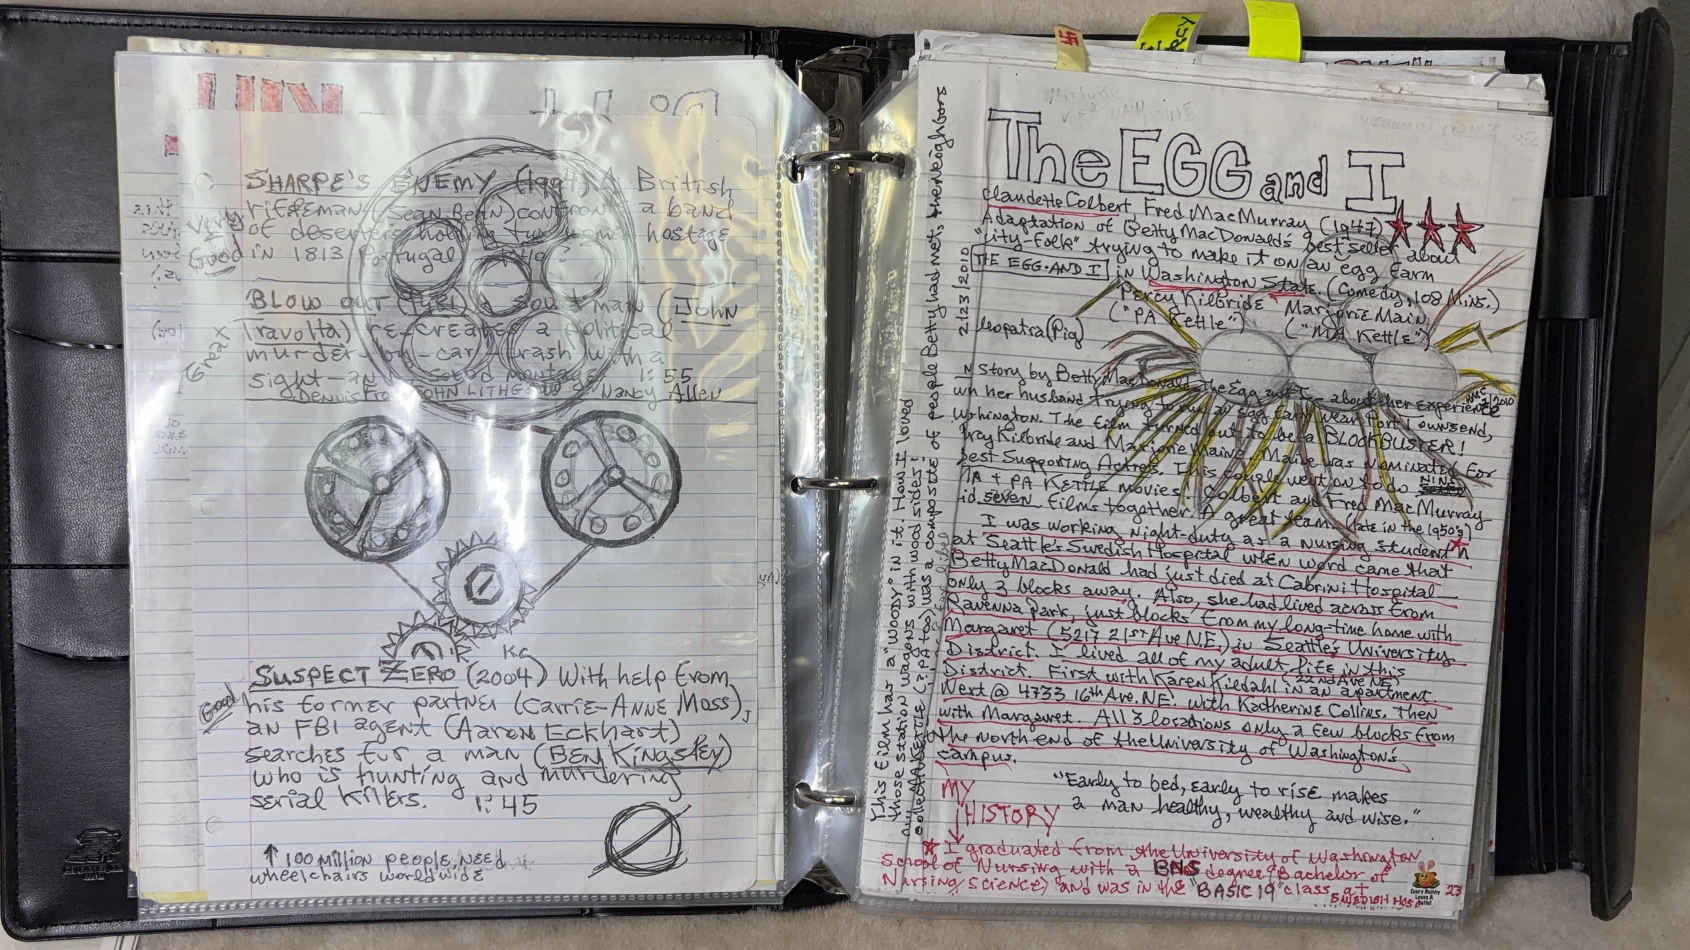 SHARPE'S ENEMY (1994) A British
rifleman (Sean Bean) confronts a band
of deserters holding two women hostage
in 1813 Portugal
Very
Good
BLOW OUT (1981) A sound man (John
Travolta) re-creates a political
murder-by-car-crash with a
sight-and-sound montage. 1:55
Dennis Franz JOHN LITHGOW Nancy Allen
Great
SUSPECT ZERO (2004) With help from
his former partner (Carrie-Anne Moss),
an FBI agent (Aaron Eckhart)
searches for a man (BEN Kingsley)
who is hunting and murdering
serial killers. 1:45
Good
↑ 100 Million people need
wheelchairs worldwide
The EGG and I
Claudette Colbert, Fred MacMurray (1947)
Adaptation of Betty MacDonald's best seller about
"city-folk" trying to make it on an egg farm
THE EGG AND I in Washington State. (Comedy, 108 Mins.)
Percy Kilbride Marjorie Main
("PA Kettle") ("MA Kettle")
Cleopatra (Pig)
2/23/2010
story by Betty MacDonald The Egg and I is about her experience
her husband trying to run an egg farm near Port Townsend,
Washington. The film turned out to be a BLOCKBUSTER!
Percy Kilbride and Marjorie Main. Maine was nominated for
best Supporting Actress. This couple went on to do NINE
MA + PA KETTLE movies. Colbert and Fred MacMurray
did seven films together. A great team. (late in the 1950's)
I was working night-duty as a nursing student
at Seattle's Swedish Hospital when word came that
Betty MacDonald had just died at Cabrini Hospital
only 3 blocks away. Also, she had lived across from
Ravenna Park, just blocks from my long-time home with
Margaret (5217 21st Ave N.E.) in Seattle's University
District. I lived all of my adult life in this
District. First with Karen Kildahl in an apartment. (22nd Ave NE)
Next @ 4733 16th Ave. NE. with Katherine Collins. Then
with Margaret. All 3 locations only a few blocks from
the north end of the University of Washington's
campus.
"Early to bed, early to rise makes
a man healthy, wealthy and wise."
MY
HISTORY
I graduated from the University of Washington
School of Nursing with a BNS degree (Bachelor of
Nursing Science) and was in the "BASIC 19" class at
SWEDISH HOSP
23
This film has a "WOODY" in it. How I loved
those station wagons with wood sides!
MA KETTLE (? PA too) was a composite of people Betty had met, the neighbors